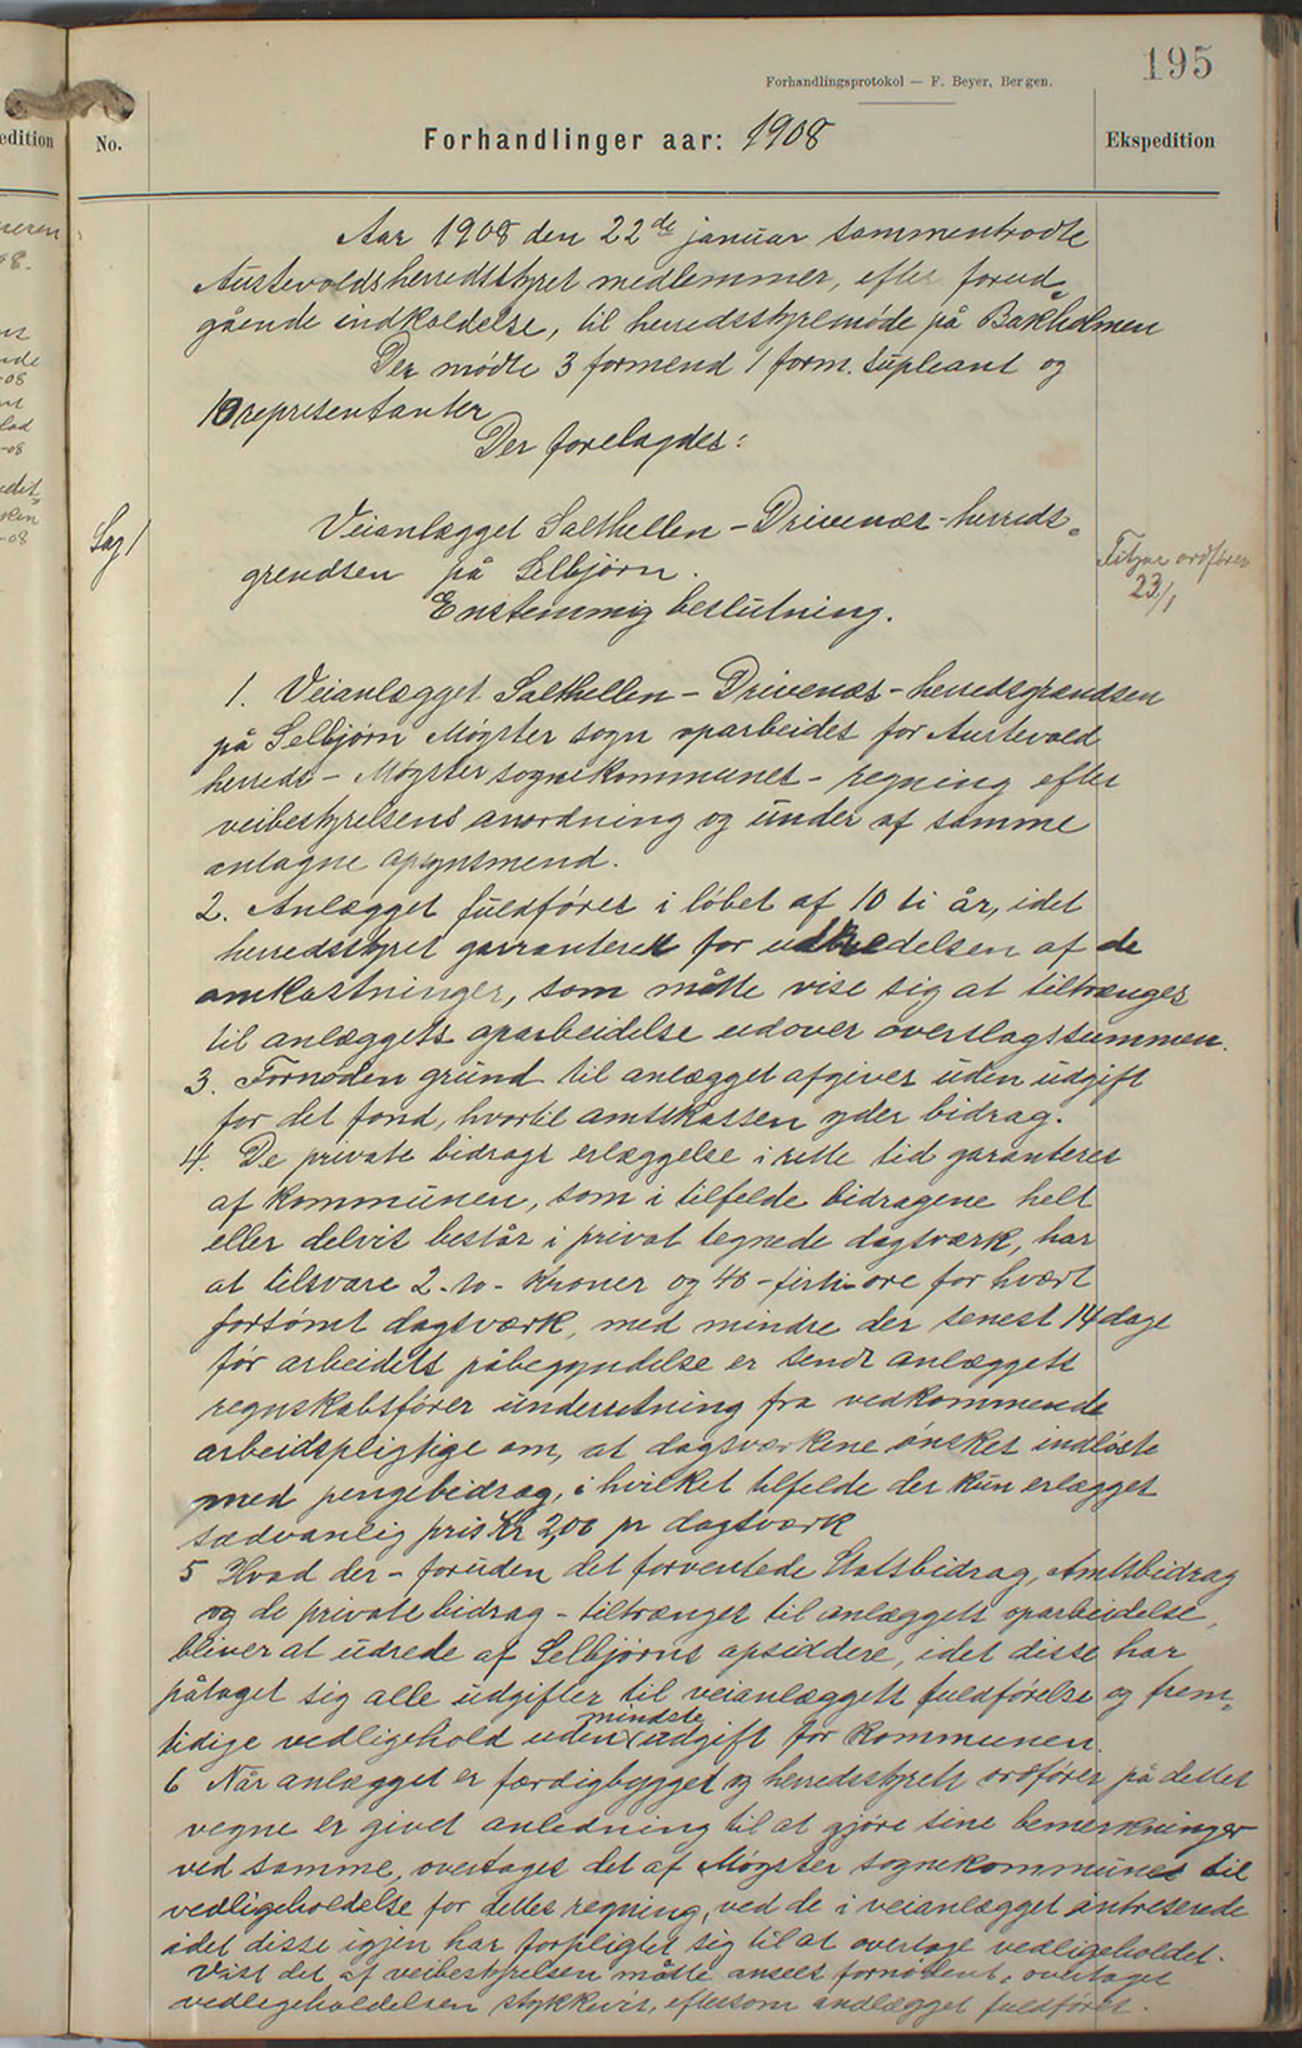 195
Forhandlingsprotokol — F. Beyer, Bergen.
edition
No.
Forhandlinger aar: 1908
Ekspedition
Aar 1908 den 22de januar sammentrodte
Austevoldsherredsstyret medlemmer, efter forud„
gående indkaldelse, til herredsstyremøde på Bakholmen
Der mødte 3 formend 1 form. supleant og
10 representanter
Der forelagdes:
Sag 1
Veianlægget Salthellen - Drivenæs - herreds„
grendsen på Selbjørn.
ordfører
23/1
Enstemmig beslutning.
1. Veianlægget Salthellen - Drivenæs - herredsgrændsen
på Selbjørn Møgster sogn oparbeides for Austevold
herreds - Møgster sognekommunes - regning efter
veibestyrelsens anordning og under af samme
antagne opsynsmend.
2. Anlægget fuldføres i løbet af 10 ti år, idet
herredsstyret garranterer for udredelsen af de
omkostninger, som måtte vise sig at tiltrænges
til anlæggets oparbeidelse udover overslagssummen.
3. Fornøden grund til anlægget afgives uden udgift
for det fond, hvortil amtskassen yder bidrag.
4. De private bidrags erlæggelse i rette tid garanteres
af kommunen, som i tilfelde bidragene helt
eller delvis består i privat tegnede dagsværk, har
at tilsvare 2 - to - kroner og 40 - firti - øre for hvært
forsømt dagsværk, med mindre der senest 14 dage
før arbeidets påbegyndelse er sendt anlæggets
regnskabsfører underretning fra vedkommende
arbeidspligtige om, at dagsværkene ønskes indløste
med pengebidrag, i hvilket tilfelde der kun erlægges
sædvanlig pris kr 2,00 pr dagsværk
5 Hvad der - foruden det forventede Statsbidrag, Amtsbidrag
og de private bidrag - tiltrænges til anlæggets oparbeidelse,
bliver at udrede af Selbjørns opsiddere, idet disse har
påtaget sig alle udgifter til veianlæggets fuldførelse og frem„
mindste
tidige vedligehold uden udgift for kommunen.
6 Når anlægget er færdigbygget og herredsstyrets ordfører på dettes
vegne er givet anledning til at gjøre sine bemerkninger
ved samme, overtages det af Møgster sognekommunes til
vedligeholdelse for dettes regning, ved de i veianlægget intreserede
idet disse igjen har forpligtet sig til at overtage vedligeholdet.
Vist det af veibestyrelsen måtte ansees fornødent, overtages
vedligeholdelsen stykkevis, eftersom andlægget fuldføres.